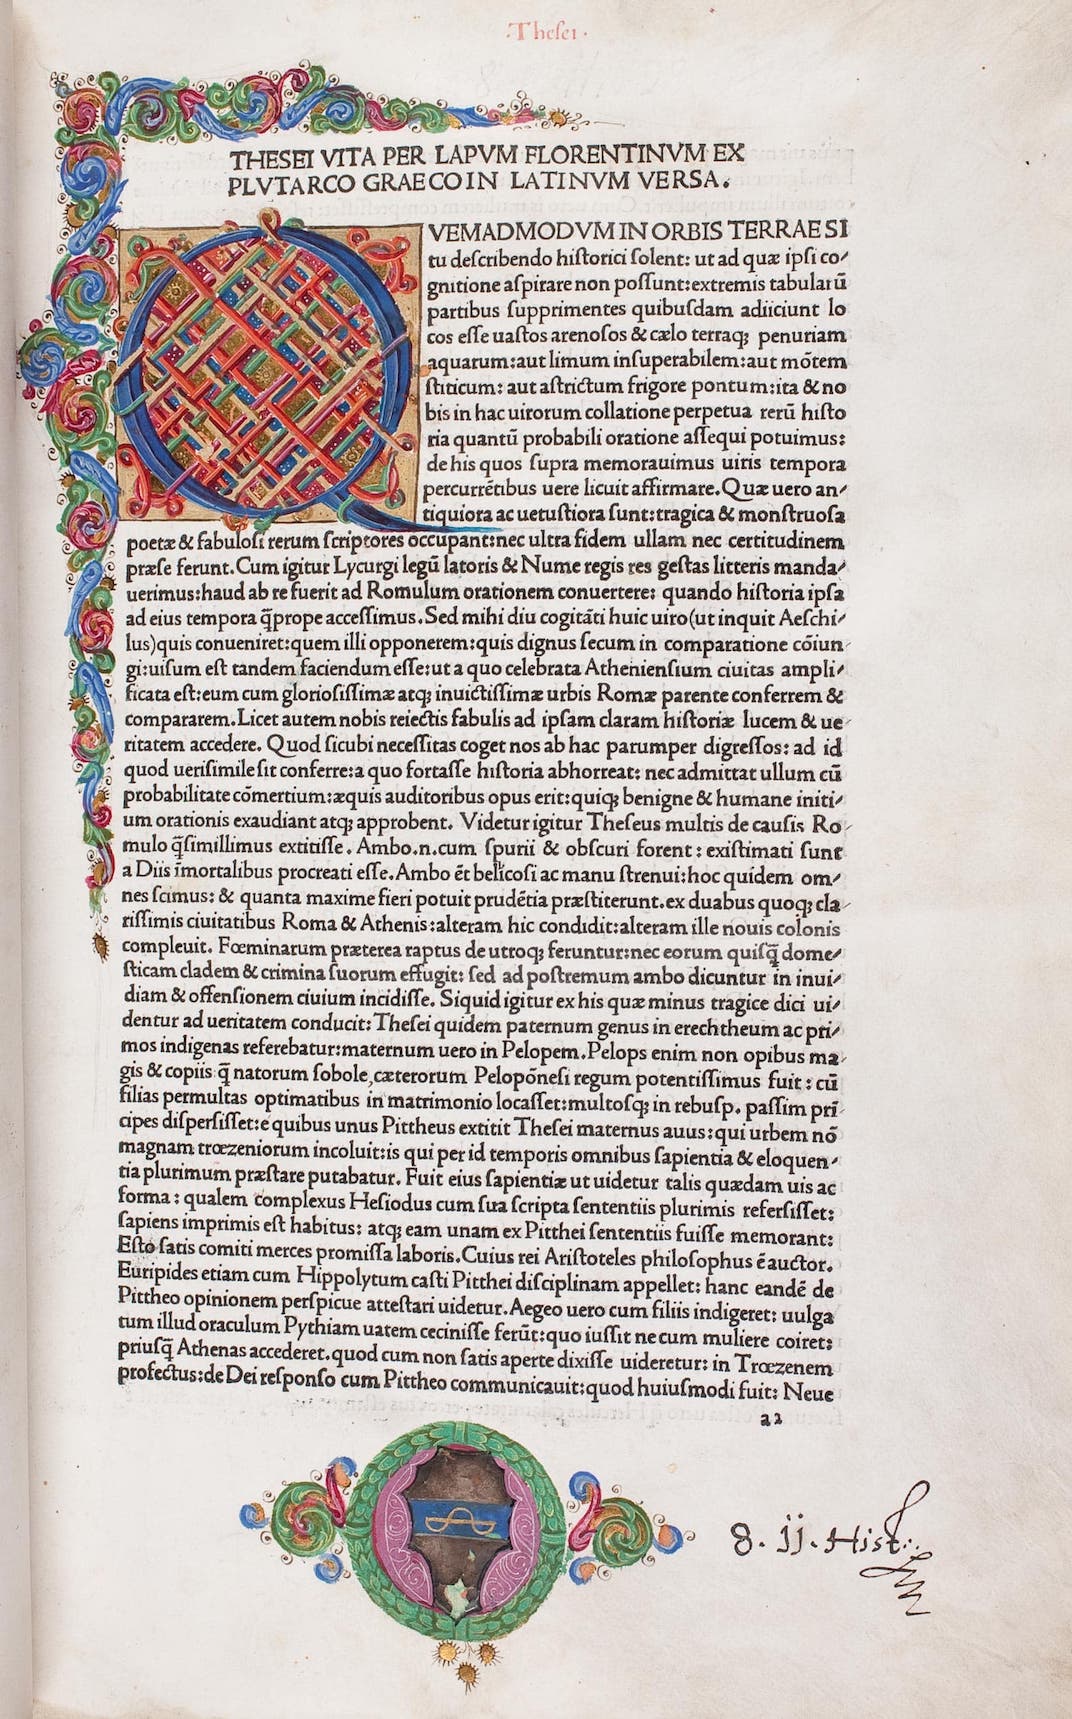 ·Thesei·
THESEI VITA PER LAPVM FLORENTINVM EX
PLVTARCO GRAECO IN LATINVM VERSA.
QVEMADMODVM IN ORBIS TERRAE SI
tu deſcribendo hiſtorici ſolent: ut ad quæ ipſi co⸗
gnitione aſpirare non poſſunt: extremis tabularū
partibus ſupprimentes quibuſdam adiiciunt lo
cos eſſe uaſtos arenoſos & cælo terraqꝫ penuriam
aquarum: aut limum inſuperabilem: aut mōtem
ſtiticum: aut aſtrictum frigore pontum: ita & no
bis in hac uirorum collatione perpetua rerū hiſto
ria quantū probabili oratione aſſequi potuimus:
de his quos ſupra memorauimus uiris tempora
percurrētibus uere licuit affirmare. Quæ uero an⸗
tiquiora ac uetuſtiora ſunt: tragica & monſtruoſa
poetæ & fabuloſi rerum ſcriptores occupant: nec ultra fidem ullam nec certitudinem
præſe ferunt. Cum igitur Lycurgi legū latoris & Nume regis res geſtas litteris manda⸗
uerimus: haud ab re fuerit ad Romulum orationem conuertere: quando hiſtoria ipſa
ad eius tempora q̄prope acceſſimus. Sed mihi diu cogitāti huic uiro (ut inquit Aeſchi⸗
lus) quis conueniret: quem illi opponerem: quis dignus ſecum in comparatione cōiun⸗
gi: uiſum eſt tandem faciendum eſſe: ut a quo celebrata Athenienſium ciuitas ampli⸗
ficata eſt: eum cum glorioſiſſimæ atqꝫ inuictiſſimæ urbis Romæ parente conferrem &
compararem. Licet autem nobis reiectis fabulis ad ipſam claram hiſtoriæ lucem & ue⸗
ritatem accedere. Quod ſicubi neceſſitas coget nos ab hac parumper digreſſos: ad id
quod ueriſimile ſit conferre: a quo fortaſſe hiſtoria abhorreat: nec admittat ullum cū
probabilitate cōmertium: æquis auditoribus opus erit: quiqꝫ benigne & humane initi⸗
um orationis exaudiant atqꝫ approbent. Videtur igitur Theſeus multis de cauſis Ro⸗
mulo q̄ſimillimus extitiſſe. Ambo .n. cum ſpurii & obſcuri forent: exiſtimati ſunt
a Diis īmortalibus procreati eſſe. Ambo ēt belicoſi ac manu ſtrenui: hoc quidem om⸗
nes ſcimus: & quanta maxime fieri potuit prudētia præſtiterunt. ex duabus quoqꝫ cla⸗
riſſimis ciuitatibus Roma & Athenis: alteram hic condidit: alteram ille nouis colonis
compleuit. Fœminarum præterea raptus de utroqꝫ feruntur: nec eorum quiſq̄ dome⸗
ſticam cladem & crimina ſuorum effugit: ſed ad poſtremum ambo dicuntur in inui⸗
diam & offenſionem ciuium incidiſſe. Siquid igitur ex his quæ minus tragice dici ui⸗
dentur ad ueritatem conducit: Theſei quidem paternum genus in erechtheum ac pri⸗
mos indigenas referebatur: maternum uero in Pelopem. Pelops enim non opibus ma⸗
gis & copiis q̄ natorum ſobole, cæterorum Pelopōneſi regum potentiſſimus fuit: cū
filias permultas optimatibus in matrimonio locaſſet: multoſqꝫ in rebuſp. paſſim prī⸗
cipes diſperſiſſet: e quibus unus Pittheus extitit Theſei maternus auus: qui urbem nō
magnam trœzeniorum incoluit: is qui per id temporis omnibus ſapientia & eloquen⸗
tia plurimum præſtare putabatur. Fuit eius ſapientiæ ut uidetur talis quædam uis ac
forma: qualem complexus Heſiodus cum ſua ſcripta ſententiis plurimis referſiſſet:
ſapiens imprimis eſt habitus: atqꝫ eam unam ex Pitthei ſententiis fuiſſe memorant:
Eſto ſatis comiti merces promiſſa laboris. Cuius rei Ariſtoteles philoſophus ē auctor.
Euripides etiam cum Hippolytum caſti Pitthei diſciplinam appellet: hanc eandē de
Pittheo opinionem perſpicue atteſtari uidetur. Aegeo uero cum filiis indigeret: uulga
tum illud oraculum Pythiam uatem ceciniſſe ferūt: quo iuſſit ne cum muliere coiret:
priuſq̄ Athenas accederet. quod cum non ſatis aperte dixiſſe uideretur: in Trœzenem
profectus: de Dei reſponſo cum Pittheo communicauit: quod huiuſmodi fuit: Neue
a2
8. jj. Hist.